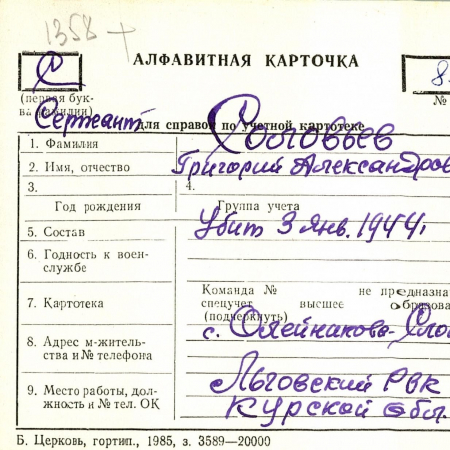 1358 +
С
АЛФАВИТНАЯ КАРТОЧКА
8
(первая бук-
ва фамилии)
№
Сержант
для справок по учетной картотеке
1. Фамилия Соловьев
2. Имя, отчество Григорий Александров
3. 4.
Год рождения Группа учета
5. Состав Убит 3 Янв. 1944г
6. Годность к воен-
службе
Команда № не предназна
7. Картотека спецучет высшее образова
(подчеркнуть)
8. Адрес м-житель-
ства и № телефона
с. Олейникова-Сло
9. Место работы, дол-
жность и № тел. ОК
Льговский РВК
Курской обл.
Б. Церковь, гортип., 1985, з. 3589—20000